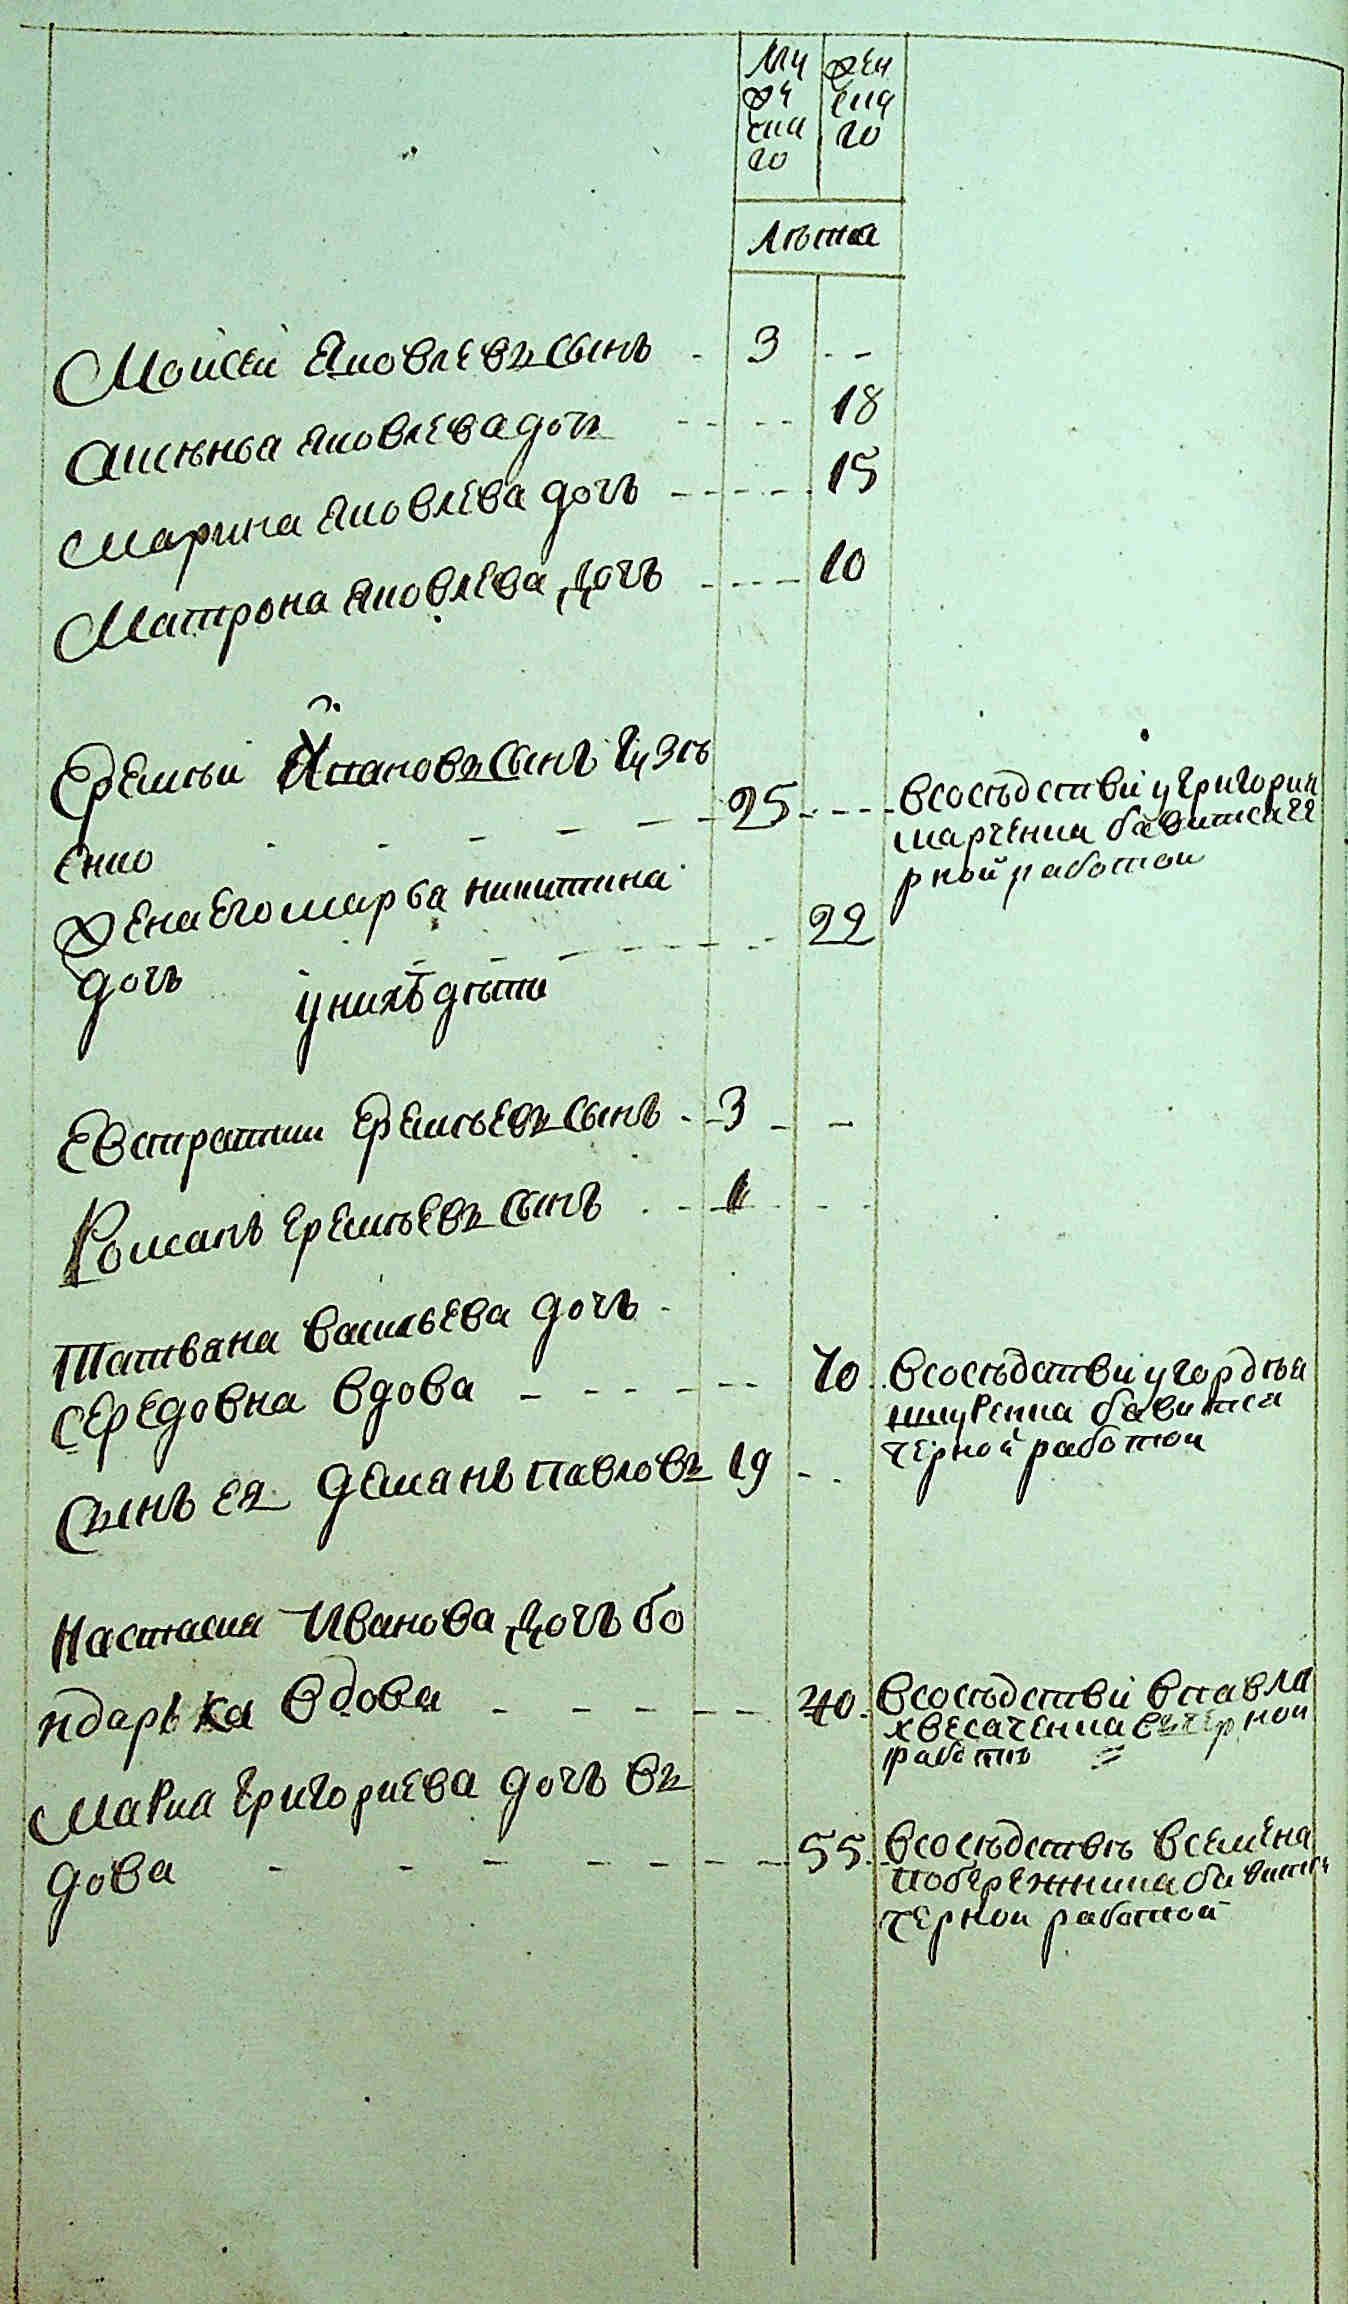 му жен
же ска
ска го
го
лѣта
Моисей Яковлевъ сынъ 3
Аксѣнья Яковлева дочъ 18
Марина Яковлева дочъ 15
Матрона Яковлева дочъ 10
Еремѣй Степановъ сынъ Гузѣ
енко 25 в сосѣдстви у Григория
Марченка бавитса че
рной работои
жена его Марѳа Никитина
дочъ 22
у нихъ дѣти
Евстратии Еремѣевъ сынъ 3
Романъ Еремѣевъ сынъ 1
Татьяна Васильева дочъ
Середовна вдова 70 в сосѣдстви у Гордѣя
бавитса
черной работои
сынъ ея Демянъ Павловъ 19
Настасия Иванова дочъ бо
ндарька вдова 40 в сосѣдстви в Павла
черной
работѣ
Мария Григориева дочъ въ
дова 55 в сосѣдствѣ в Семена
Побережника бавитса
черной работой